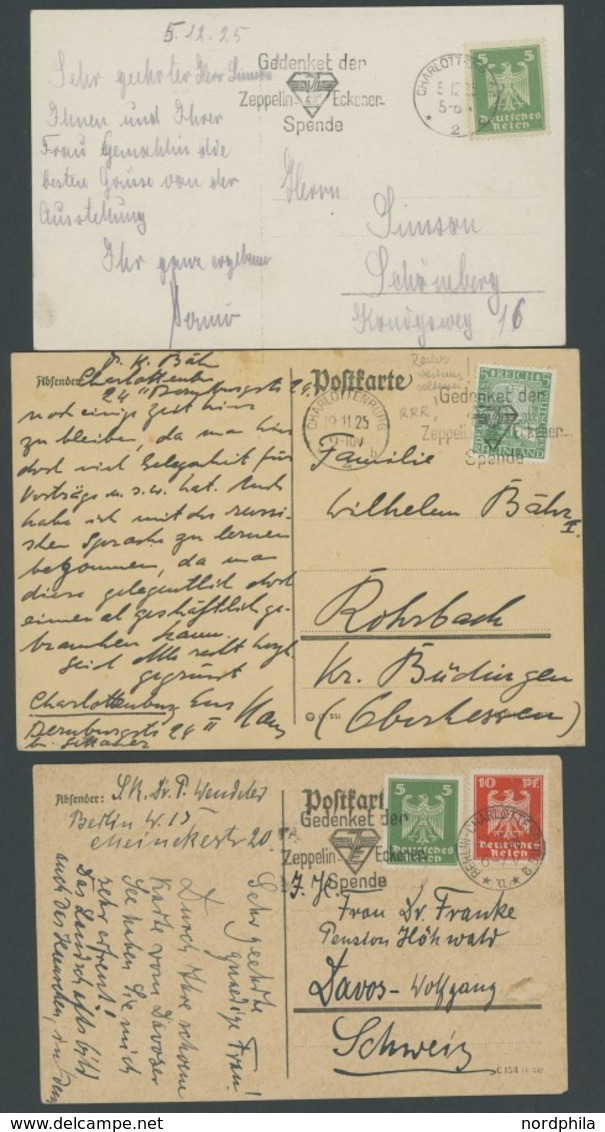 5.12.25
Sehr geehrter Herr Simson
Ihnen und Ihrer
Frau Gemahlin die
besten Grüsse von der
Ausstellung
Ihr ganz ergebener
Gedenket der
Zeppelin- Eckener-
Spende
CHARLOTTENBURG
5.12.25
5-6
2
5 5
Deutsches
Reich
Herrn
Simson
Schömberg
16
Absender: Dr. K. Bähr
Charlottenbg
24 II Dernburgstr 24
Postkarte
noch einige Zeit hier
zu bleiben, da man hier
doch viel Gelegenheit für
Vorträge u.s.w. hat. Auch
habe ich mit der russi-
schen Sprache zu lernen
begonnen, da man
diese gelegentlich doch
einmal geschäftlich ge-
brauchen kann.
Seid Alle recht herzl.
gegrüsst
Euer
Charlottenburg
Dernburgstr 24 II
CHARLOTTENBURG
10.11.25
9-10V
b
RRR,
Gedenket der
Zeppelin- Eckener-
Spende
Familie
Wilhelm Bähr
II.
Rohrbach
Kr. Büdingen
(Oberhessen)
Absender: S.R. Dr. P. Wendeler
Berlin W. 15
Meinekestr 20.
Postkart
Gedenket der
Zeppelin- Eckener-
Spende
5 5
Deutsches
Reich
10 Pf.
Deutsches
Reich
BERLIN-CHARLOTTENBURG 2
Frau Dr. Franke
Pension Höhwald
Davos-Wolfgang
Schweiz
C 154
Sehr geehrte
gnädige Frau!
Durch Ihre schöne
Karte vom Davoser
See haben Sie mich
sehr erfreut!
Das Landschaftsbild